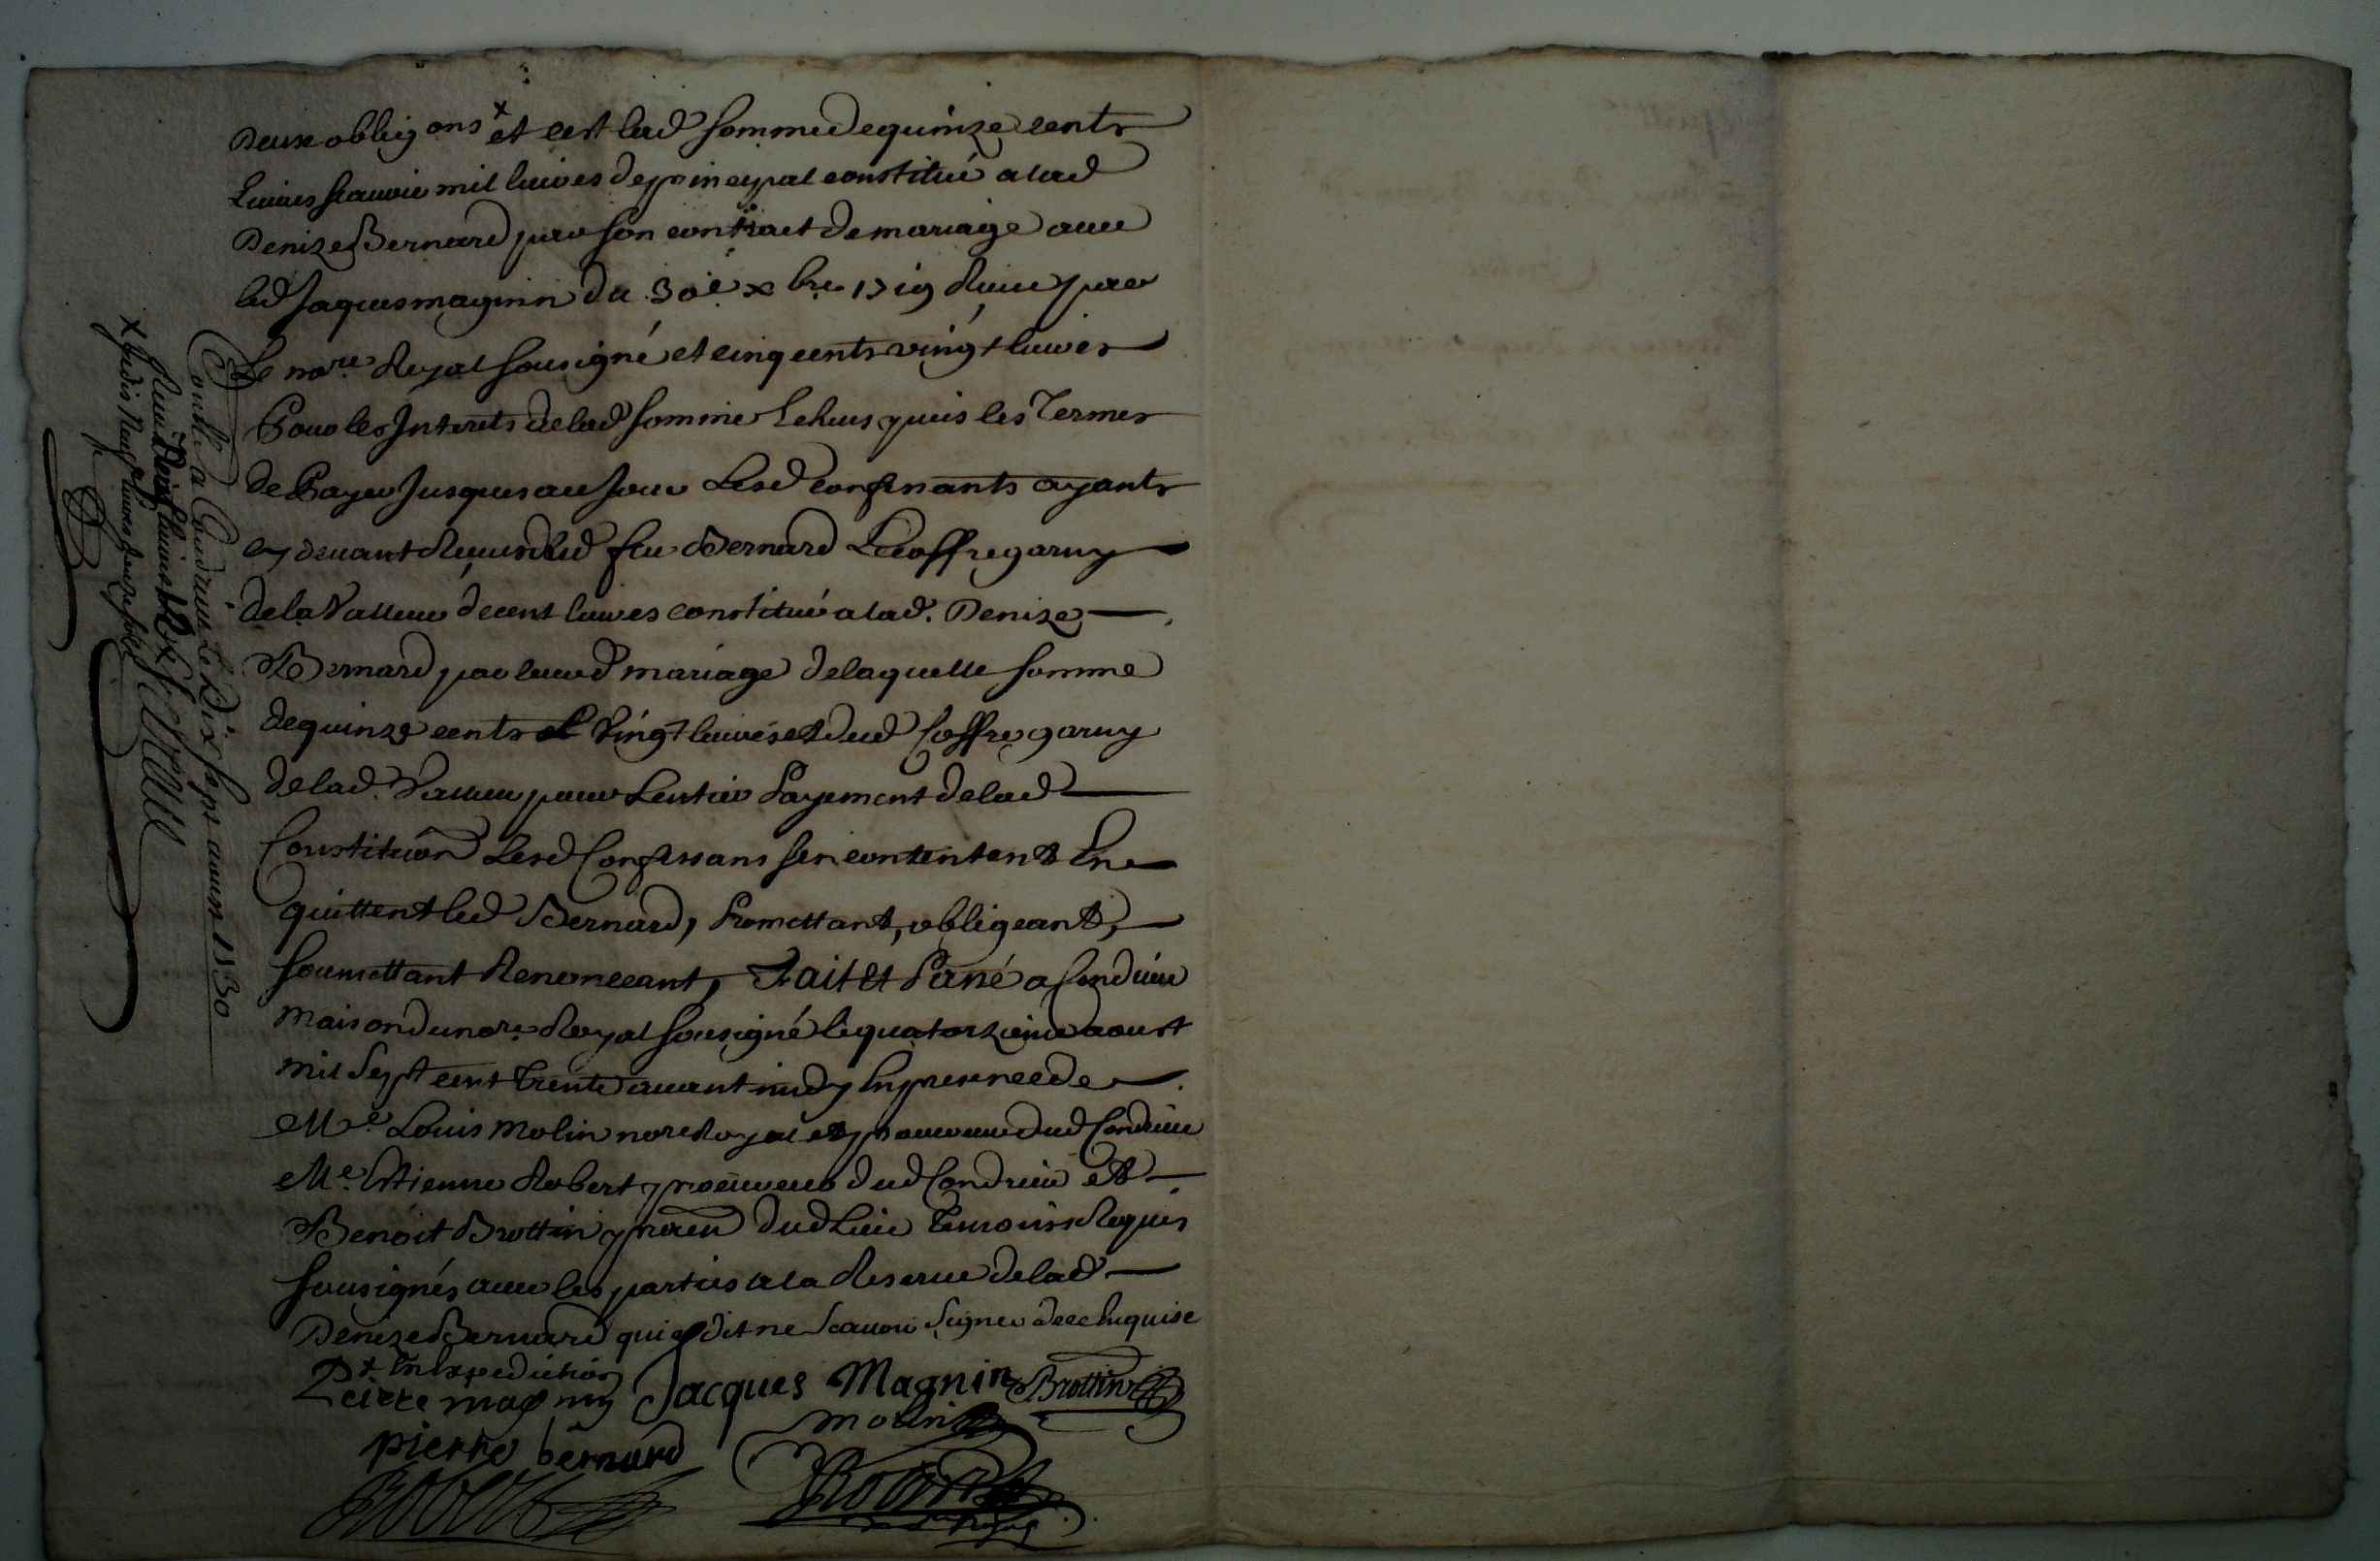 Deux obligons x et est lad somme de quinze cents
Livres scauoir mil liures de principal constitué a lad
Denize Bernard par son contract de mariage auec
led Jaques magnin du 30e xbre 1719 Receu par
Le nore Royal sousigné et cinq cents vingt liures
Pour les Interets de lad somme Echus puis les Termes
de Payer Jusques au Jour Lesd confessants ayants
cy deuant Receus dud feu Bernard Le coffre garny
de la Valleur de cent liures constitué a lad. Denize
Bernard par leurd mariage de laquelle somme
de quinze cents vingt liures et dud Coffre garny
de lad. Valleur pour Lentier Payement de lad
Constituôn Lesd Confessans sen contentent En
quittent led Bernard, Promettant, obligeant,
soumettant Renonceant, Fait et Passé a Condrieu
maison du nore Royal sousigné le quatorzieme aoust
mil sept cent Trente auant midy En presence de
Me Louis Molin nore Royal et procureur dud Condrieu
Me Etienne Robert procureur dud Condrieu et
Benoit Brottin prâcn dud Lieu Temoins Requis
sousignés auec les parties a la Reserue de lad
Denize Bernard qui a dit ne scauoir signer de ce Enquise
Pt En Expedietion
Pierre magnin Jacques Magnin Brottin
molin
pierre bernard
Robert
Conllé a Condrieu le Dix sept aoust 1730
Receu
x